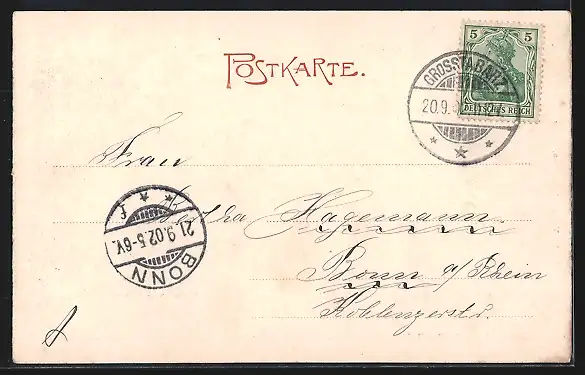 POSTKARTE.
5 5
DEUTSCHES REICH
GROSSTABARZ
20.9.
Frau
Hagemann.
Bonn a/Rhein
Koblenzerstr.
BONN
21.9.02.5-6V.
f